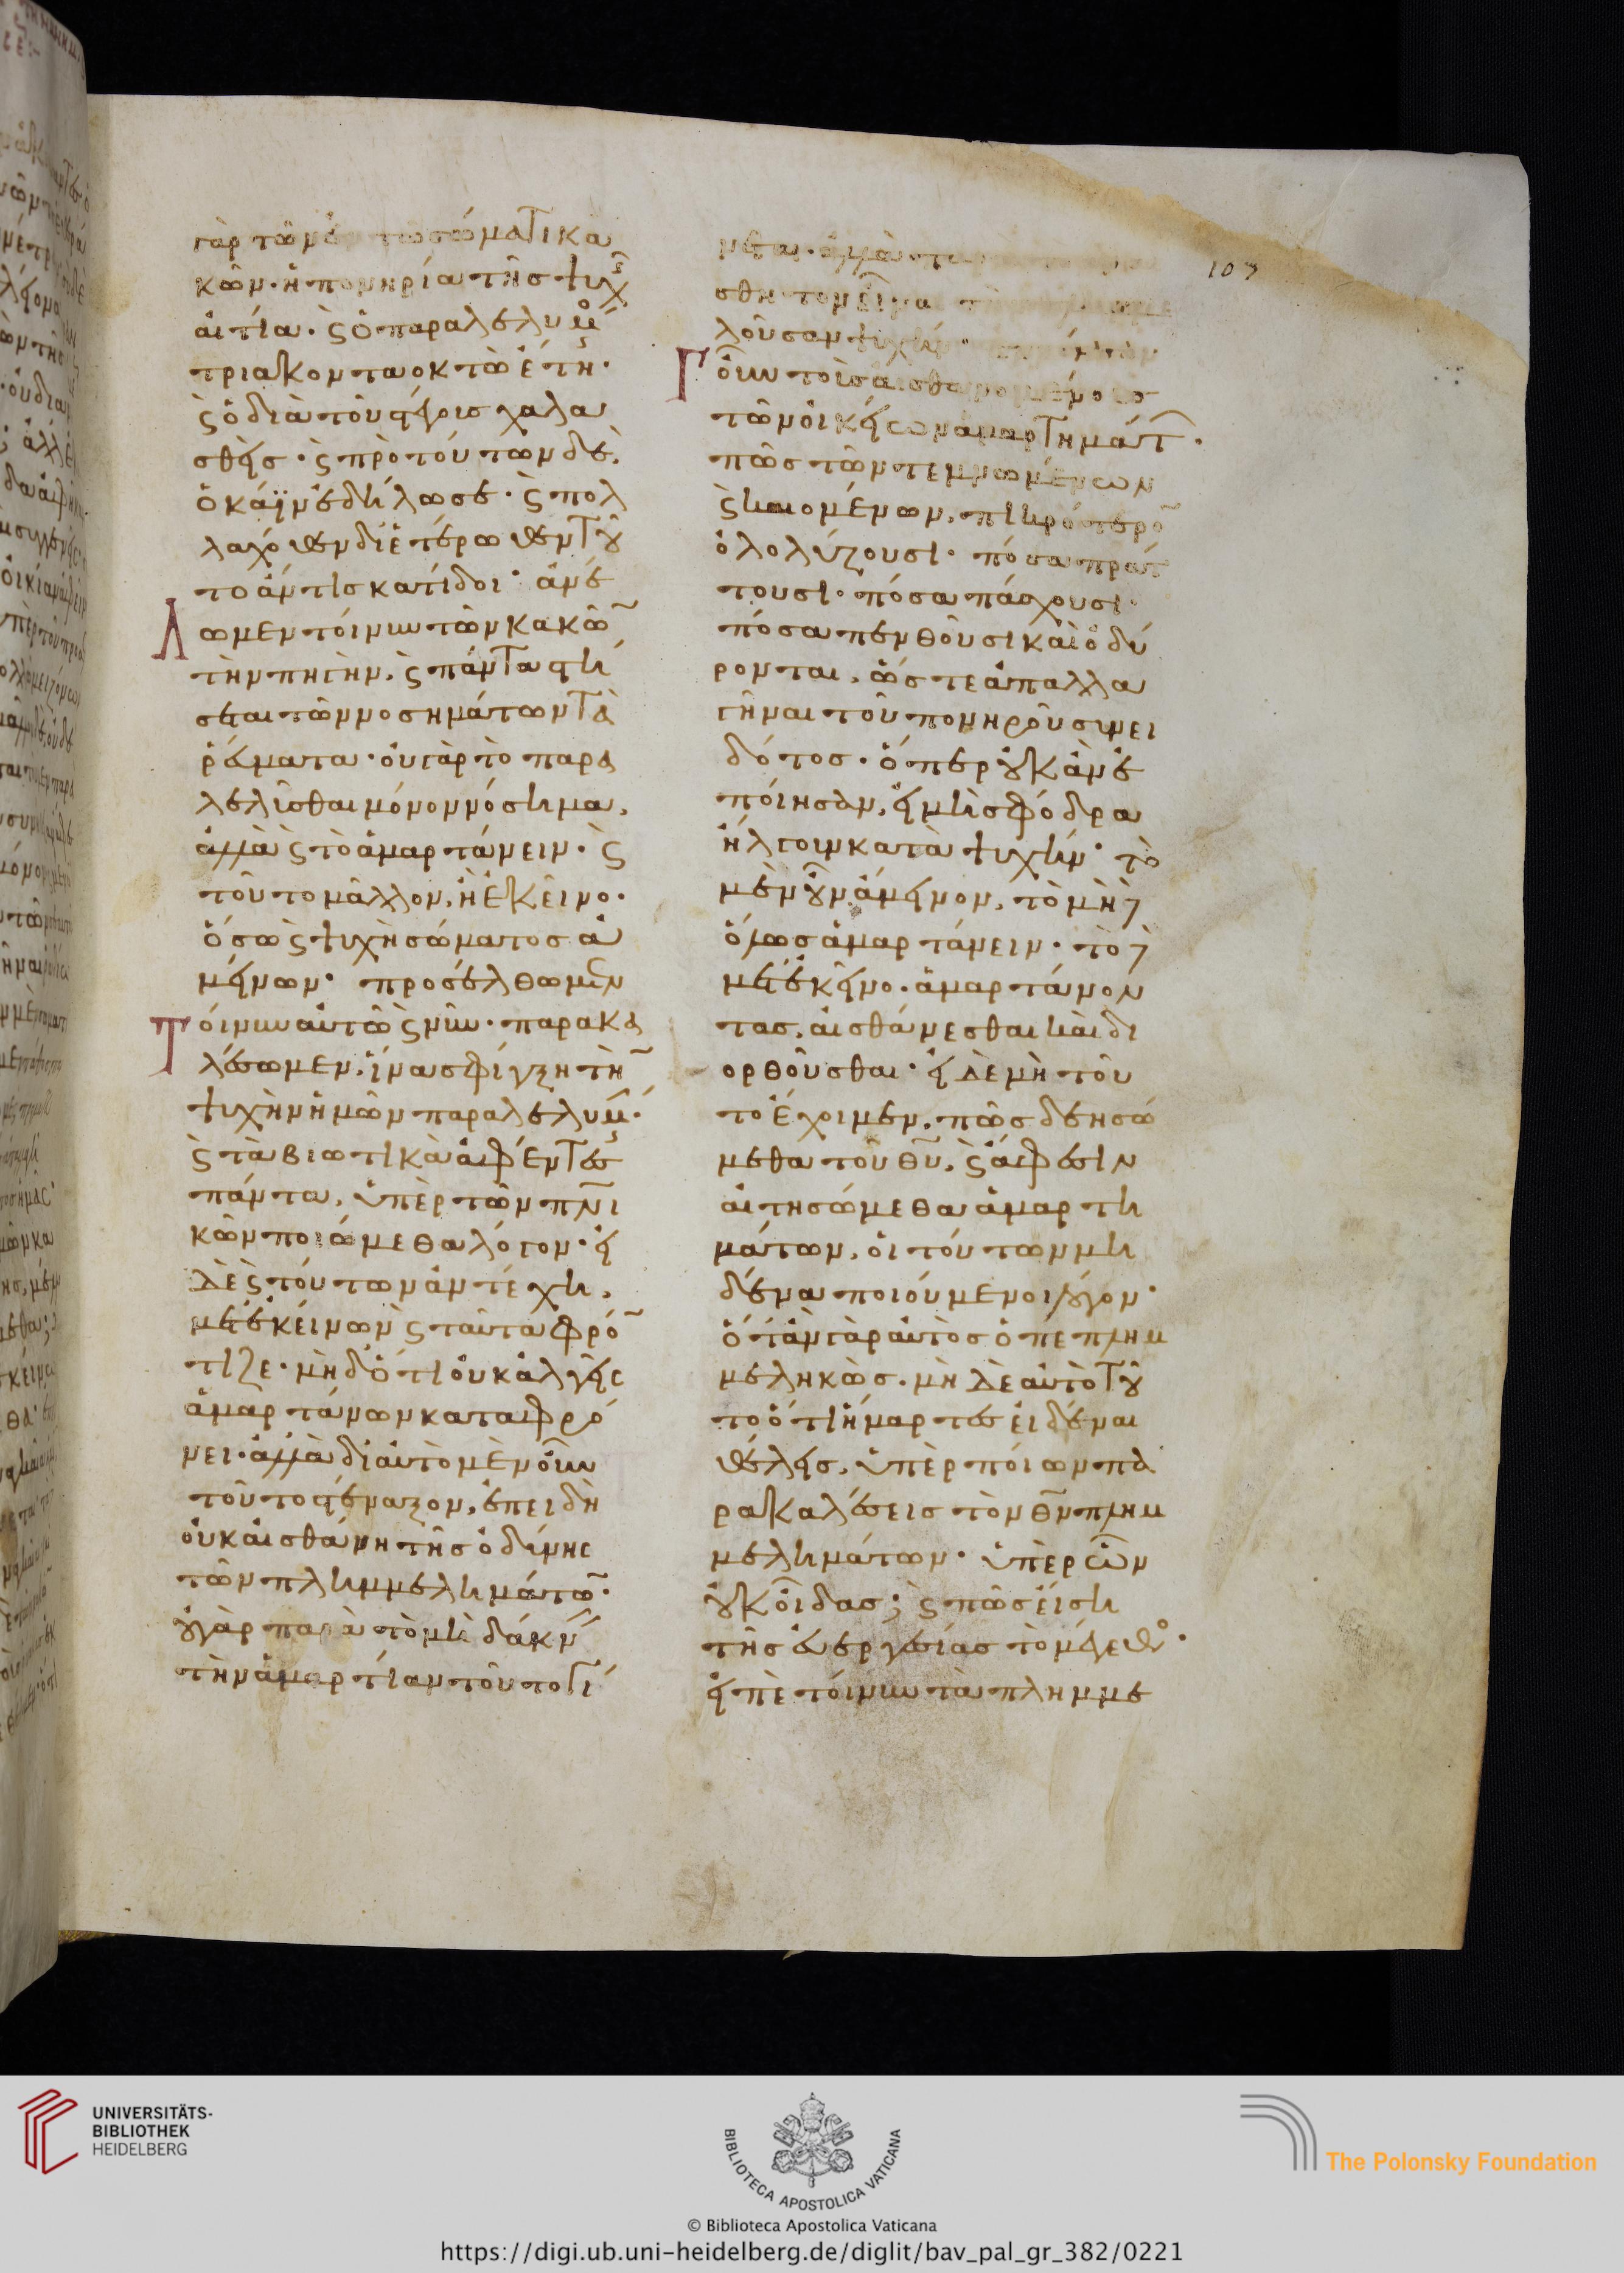 γὰρ τῶν ἐν τῶ σώματι κα
κῶν· ἡ πονηρία τῆς ψυχῆς
αἰτία· ϛ ὁ παραλελυμένος
τριακονταοκτὼ ἔτη·
ϛ ὁ διὰ τοῦ στέγους χαλα
σθείς· ϛ πρὸ τούτων δὲ,
ὁ κάϊν ἐδήλωσε· ϛ πολ
λαχόθεν δὲ ἑτέρωθεν τοῦ
το ἄν τις κατίδοι· ἀνέ
λωμεν τοίνυν τῶν κακῶν
τὴν πηγὴν, ϛ πάντα στή
σεται τῶν νοσημάτων τὰ
ῥεύματα· οὐ γὰρ τὸ παρα
λελῦσθαι μόνον νόσημα,
ἀλλὰ ϛ τὸ ἁμαρτάνειν· ϛ
τοῦτο μᾶλλον, ἢ ἐκεῖνο·
ὅσω ϛ ψυχὴ σώματος ἀ
μείνων· προσέλθωμεν
τοίνυν αὐτῶ ϛ νῦν· παρακα
λέσωμεν, ἵνα σφίγξη τὴν
ψυχὴν ἡμῶν παραλελυμένην·
ϛ τὰ βιωτικὰ ἀφέντες
πάντα, ὑπὲρ τῶν πνι
κῶν ποιώμεθα λόγον· εἰ
δὲ ϛ τούτων ἀντέχη,
μετ' ἐκείνων ϛ ταῦτα φρόν
τιζε· μὴ δ' ὅτι οὐκ ἀλγεῖς
ἁμαρτάνων καταφρό
νει· ἀλλὰ δι' αὐτὸ μὲν οὖν
τοῦτο στέναζον, ἐπειδὴ
οὐκ αἰσθάνη τῆς ὀδύνης
τῶν πλημμελημάτων·
οὐ γὰρ παρὰ τὸ μὴ δάκνειν
τὴν ἁμαρτίαν τοῦτο γί
νεται· ἀλλὰ
σθητον εἶναι
λοῦσαν ψυχήν·
Γοῦν τοῖς αἰσθανομένοις
τῶν οἰκείων ἁμαρτημάτων·
πῶς τῶν τεμνωμένων
ϛ καιομένων, πικρότερον
ὀλολύζουσι· πόσα πράτ
τουσι· πόσα πάσχουσι·
πόσα πενθοῦσι καὶ ὀδύ
ρονται, ὥστε ἀπαλλα
γῆναι τοῦ πονηροῦ συνει
δότος· ὅπερ οὐκ ἂν ἐ
ποίησαν, εἰ μὴ σφόδρα
ἤλγουν κατὰ ψυχήν· τὸ
μὲν οὖν ἄμεινον, τὸ μὴ δὲ
ὅλως ἁμαρτάνειν· τὸ δὲ
μετ' ἐκεῖνο· ἁμαρτάνον
τας, αἰσθάνεσθαι καὶ δι
ορθοῦσθαι· εἰ δὲ μὴ τοῦ
το ἔχοιμεν, πῶς δεησώ
μεθα τοῦ θυ, ϛ ἄφεσιν
αἰτησώμεθα ἁμαρτη
μάτων, οἱ τούτων μη
δένα ποιούμενοι λόγον·
ὅταν γὰρ αὐτὸς ὁ πεπλημ
μεληκὼς· μὴ δὲ αὐτὸ τοῦ
το ὅτι ἥμαρτες εἰδέναι
θέλεις, ὑπὲρ ποίων πα
ρακαλέσεις τὸν θν πλημ
μελημάτων· ὑπὲρ ὧν
οὐκ οἶδας; ϛ πῶς εἴση
τῆς εὐεργεσίας τὸ μέγεθος·
εἰπὲ τοίνυν τὰ πλημμε
107
UNIVERSITÄTS-
BIBLIOTHEK
HEIDELBERG
BIBLIOTECA APOSTOLICA VATICANA
The Polonsky Foundation
© Biblioteca Apostolica Vaticana
https://digi.ub.uni-heidelberg.de/diglit/bav_pal_gr_382/0221